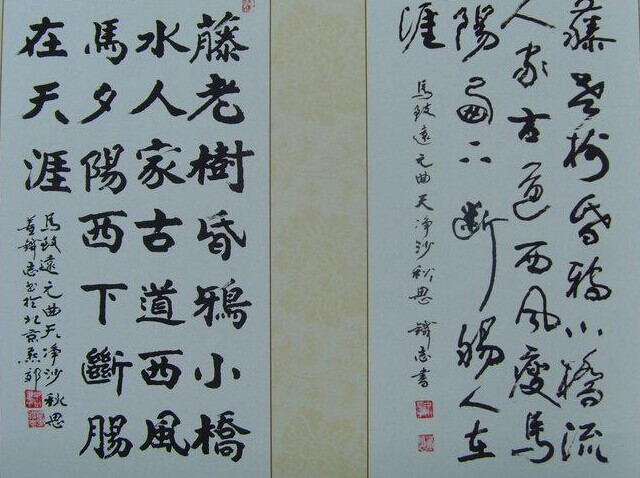 藤老樹昏鴉小橋流
人家古道西風瘦馬
陽西下斷腸人在
涯
馬致遠元曲天净沙秋思 志書
藤老樹昏鴉小橋
水人家古道西風
馬夕陽西下斷腸
在天涯
馬致遠元曲天净沙秋思
志书於北京燕郊